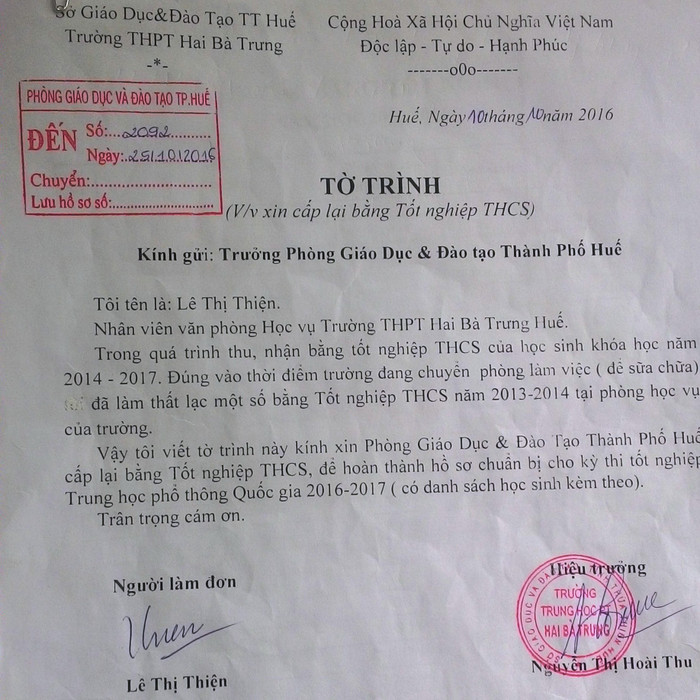 Sở Giáo Dục&Đào Tạo TT Huế
Trường THPT Hai Bà Trưng
-*-
Cộng Hoà Xã Hội Chủ Nghĩa Việt Nam
Độc lập - Tự do - Hạnh Phúc
-------o0o-------
PHÒNG GIÁO DỤC VÀ ĐÀO TẠO TP.HUẾ
ĐẾN
Số:...2092..........
Ngày:..25/10/2016
Chuyển:............................
Lưu hồ sơ số:.......................
Huế, Ngày 10 tháng 10 năm 2016
TỜ TRÌNH
(V/v xin cấp lại bằng Tốt nghiệp THCS)
Kính gửi: Trưởng Phòng Giáo Dục & Đào tạo Thành Phố Huế
Tôi tên là: Lê Thị Thiện.
Nhân viên văn phòng Học vụ Trường THPT Hai Bà Trưng Huế.
Trong quá trình thu, nhận bằng tốt nghiệp THCS của học sinh khóa học năm
2014 - 2017. Đúng vào thời điểm trường đang chuyển phòng làm việc ( để sữa chữa)
đã làm thất lạc một số bằng Tốt nghiệp THCS năm 2013-2014 tại phòng học vụ
của trường.
Vậy tôi viết tờ trình này kính xin Phòng Giáo Dục & Đào Tạo Thành Phố Huế
cấp lại bằng Tốt nghiệp THCS, để hoàn thành hồ sơ chuẩn bị cho kỳ thi tốt nghiệp
Trung học phổ thông Quốc gia 2016-2017 ( có danh sách học sinh kèm theo).
Trân trọng cám ơn.
Người làm đơn
Thien
Lê Thị Thiện
Hiệu trưởng
TRƯỜNG
TRUNG HỌC
HAI BÀ TRƯNG
Nguyễn Thị Hoài Thu